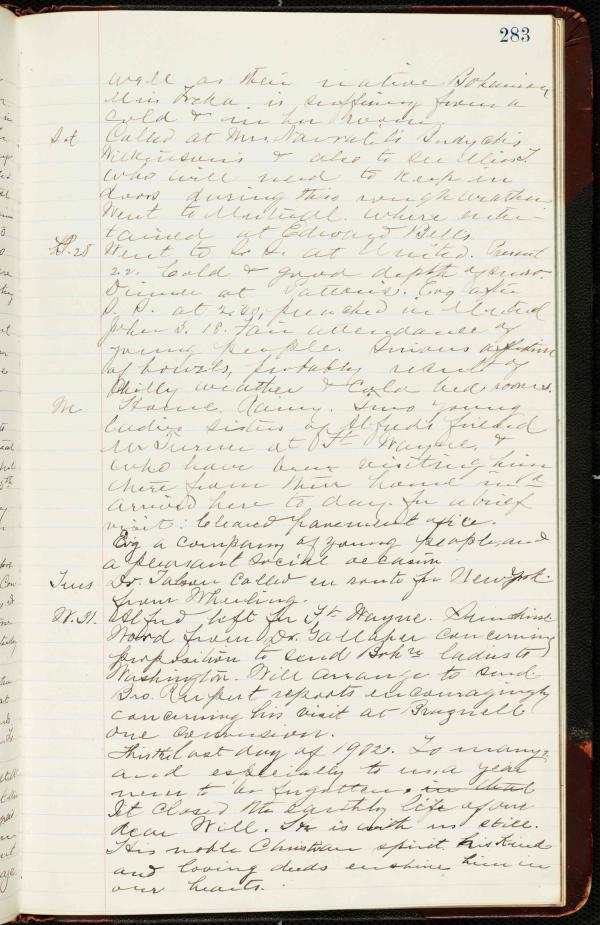 283
well as their native Bohemian
Miss is suffering from a
cold & in her room.
Sat Called at Mrs. Navratil's
Wilkinson's & also to see Miss T.
who will need to keep in
doors during this rough weather
Went to where enter-
tained at Edward Bells.
S. 28 Went to S. S. at United. Present
22. Cold & good depth of snow.
Dinner at Pattons. Eve after
S. S. at 2.30, preached in
John 3. 18. Fair attendance of
young people. Serious affection
of bowels, probably result of
chilly weather & cold bed rooms.
M Home. Rainy. Two young
ladies sisters of Alfreds friend
Mr Turner at Ft Wayne, &
who have been visiting him
there from their home in
arrived here to day for a brief
visit: Cleaned pavement of ice.
Evg a company of young people, and
a pleasant social occasion
Tues Dr. called en route for New York
from Wheeling.
W. 31. Alfred left for Ft Wayne. Sunshine
Word from Dr. Gallaher concerning
proposition to send Bohn ladies to
Washington. Will arrange to send.
Geo. Rupert reports encouragingly
concerning his visit at Bragnell
one conversion.
This the last day of 1902. To many,
and especially to us, a year
never to be forgotten. in that
It closed the earthly life of our
dear Will. He is with us still.
His noble Christian spirit his kind
and loving deeds enshrine him in
our hearts.